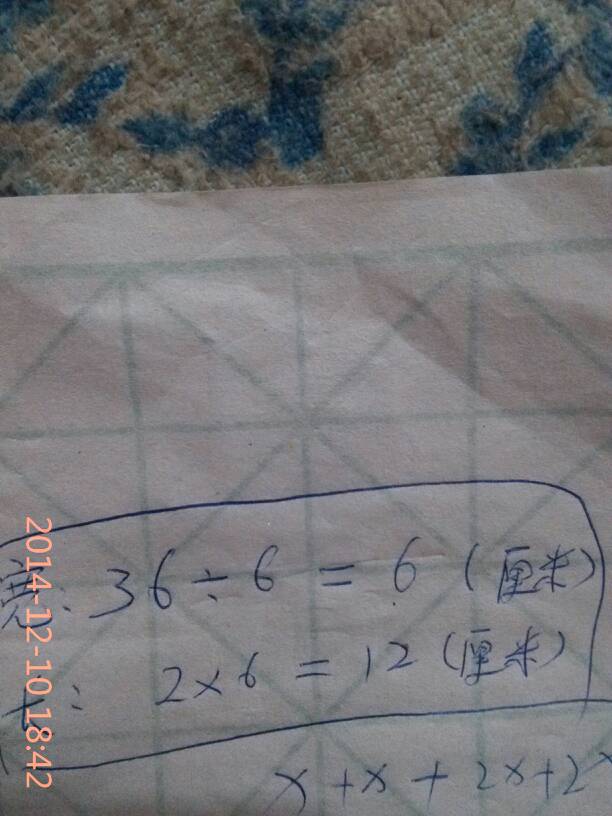 宽: 36÷6 = 6 (厘米)
长: 2×6 = 12 (厘米)
x+x+2x+2x
2014-12-10 18:42